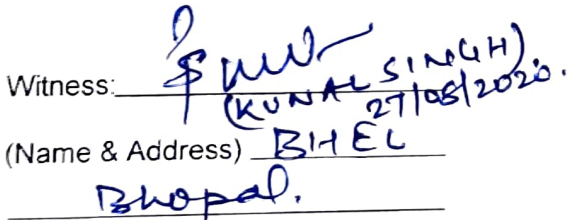 Witness:
(KUNAL SINGH)
27/08/2020.
(Name & Address) BHEL
Bhopal.